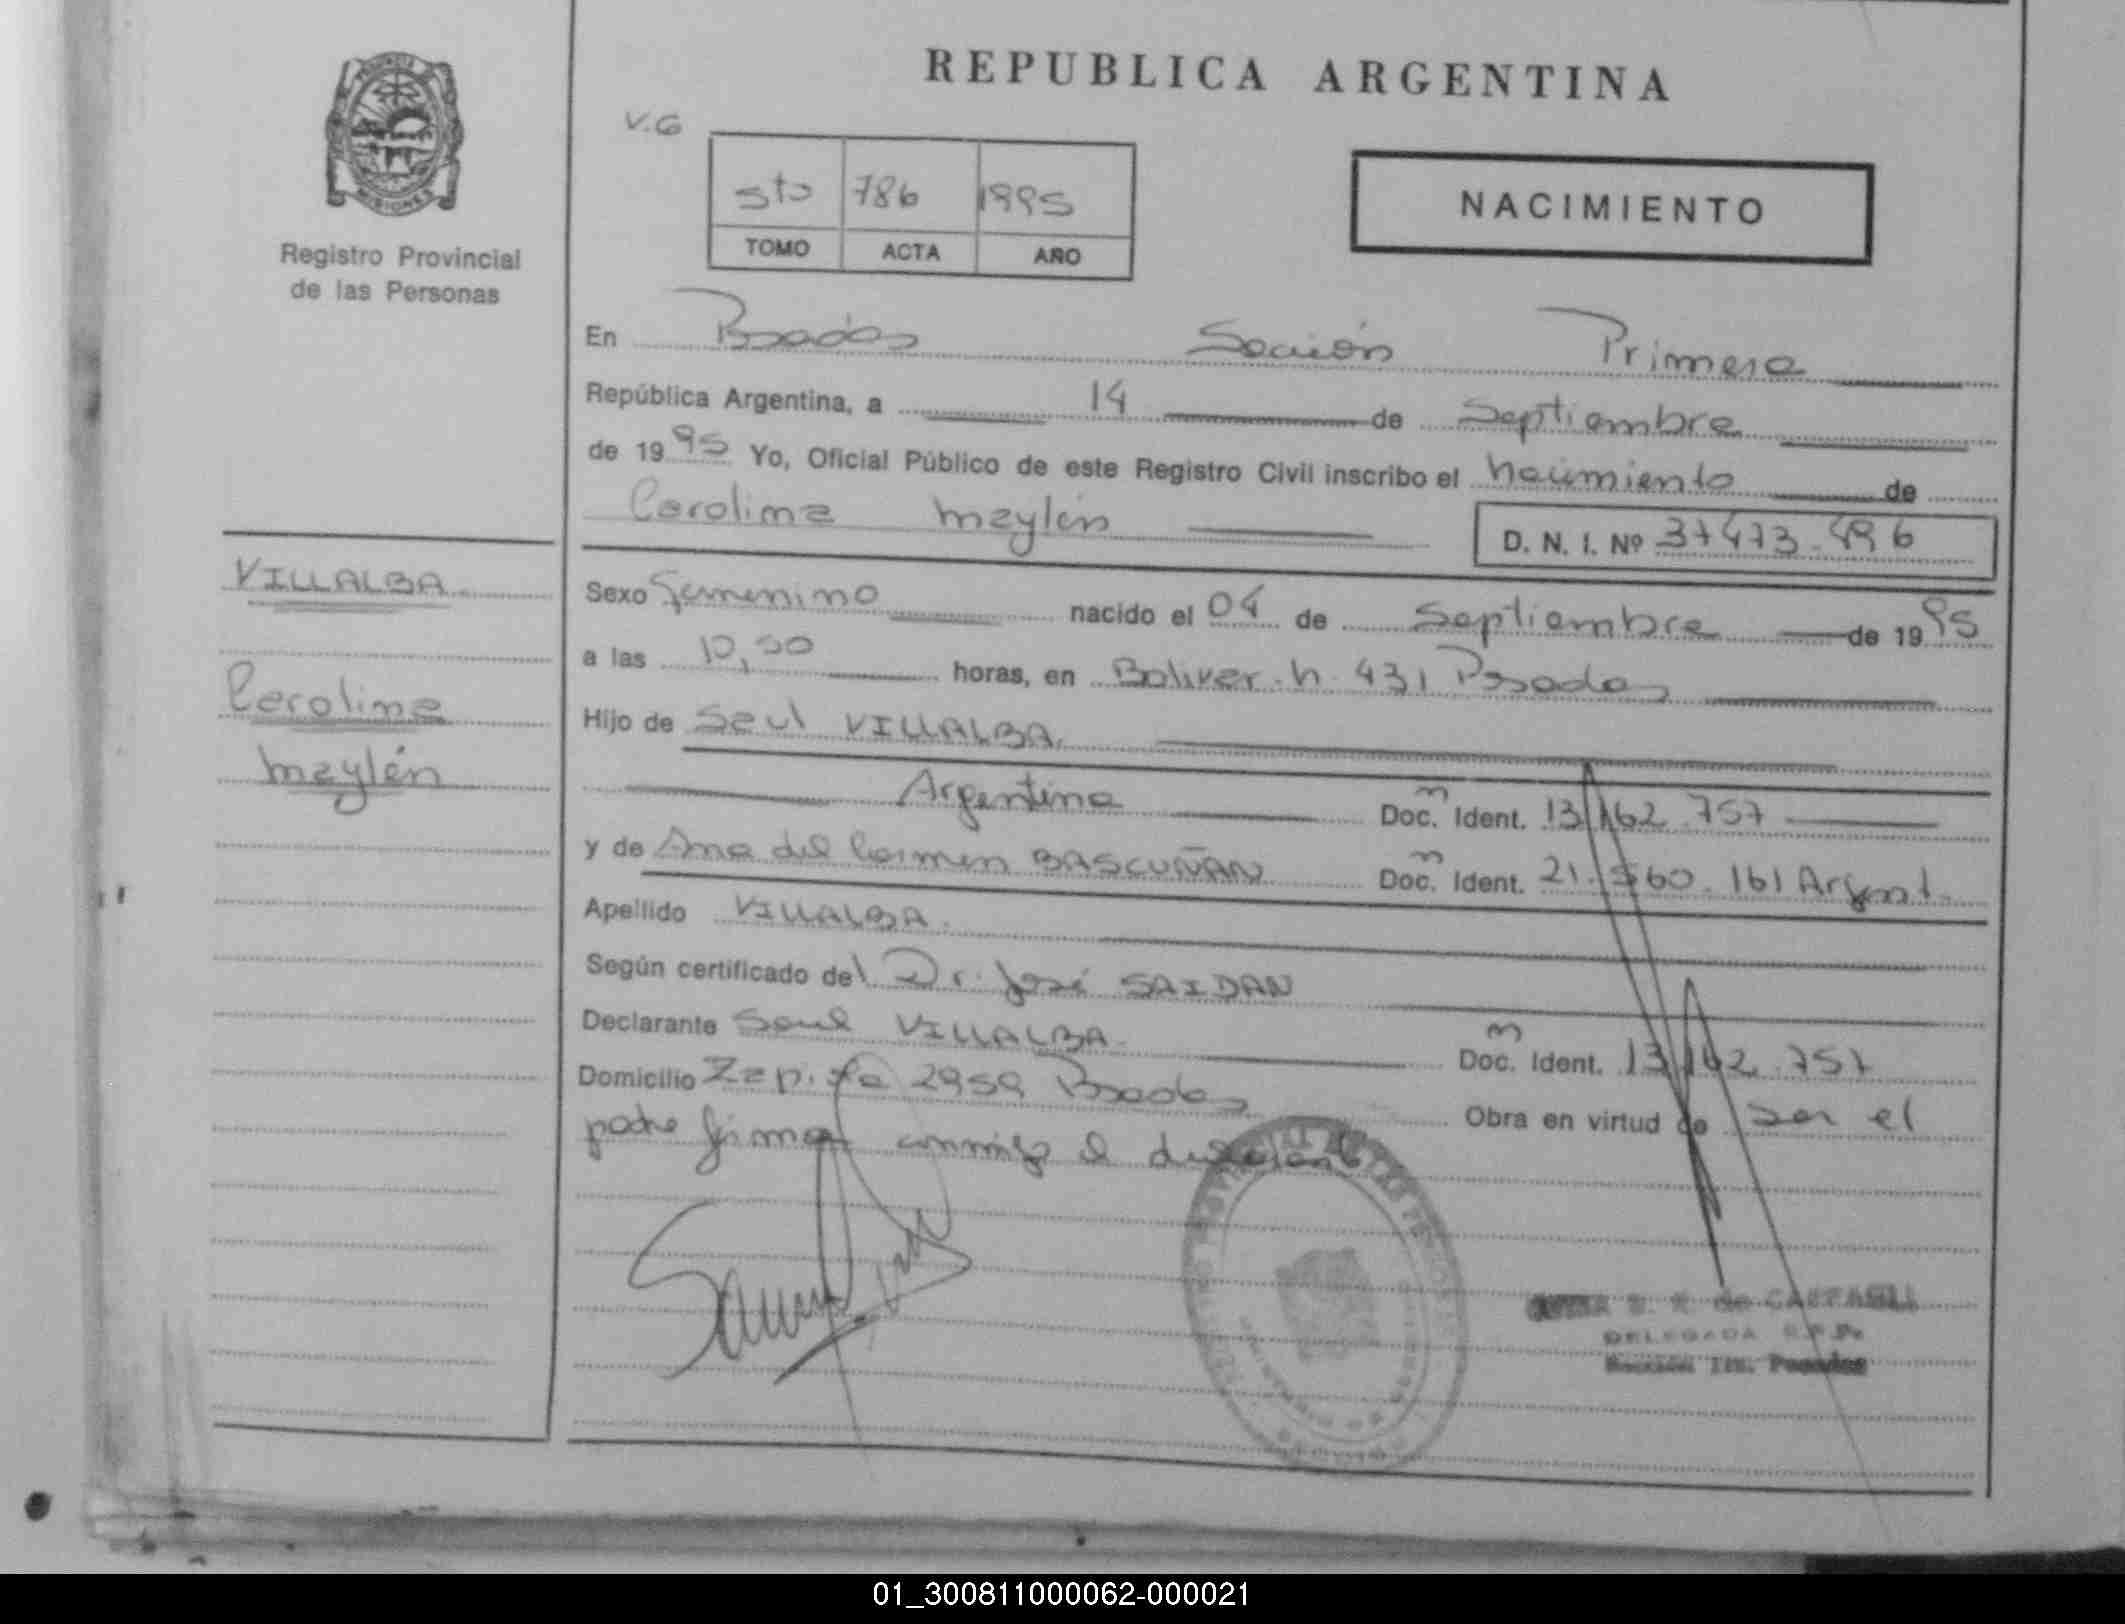 REPUBLICA ARGENTINA
V.G
5to 786 1995
TOMO ACTA AÑO
NACIMIENTO
PROVINCIA DE MISIONES
Registro Provincial
de las Personas
En Posadas Sección Primera
República Argentina, a 14 de Septiembre
de 1995 Yo, Oficial Público de este Registro Civil inscribo el nacimiento de
Carolina Maylén
D. N. I. Nº
VILLALBA
Carolina
Maylén
Sexo femenino nacido el 04 de Septiembre de 1995
a las horas, en Bolivar n. 431 Posadas
Hijo de Saul VILLALBA
Argentina Doc. m Ident. 13.162.757
y de Ana del Carmen BASCUÑAN Doc. m Ident. 21. 160.161 Argent.
Apellido VILLALBA.
Según certificado del Dr. José SAIDAN
Declarante Saul VILLALBA Doc. m Ident. 13.162.757
Domicilio 2959 Posadas Obra en virtud de ser el
padre firma conmigo el declarante
DELEGADA R.P.P.
Sección 1ra. Posadas
01_300811000062-000021